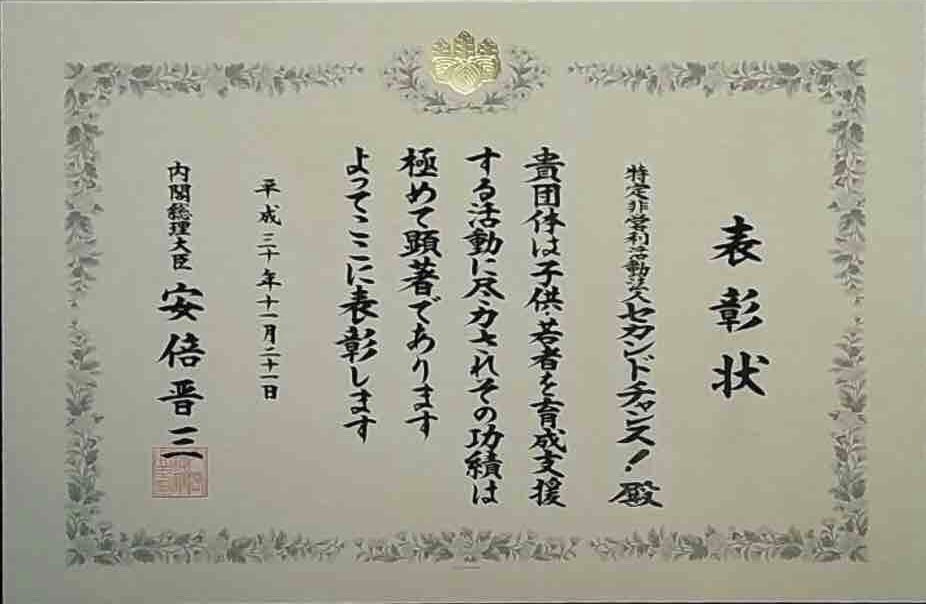 表彰状
特定非営利活動法人セカンドチャンス！殿
貴団体は子供・若者を育成支援
する活動に尽力されその功績は
極めて顕著であります
よってここに表彰します
平成三十年十一月二十一日
内閣総理大臣 安倍晋三